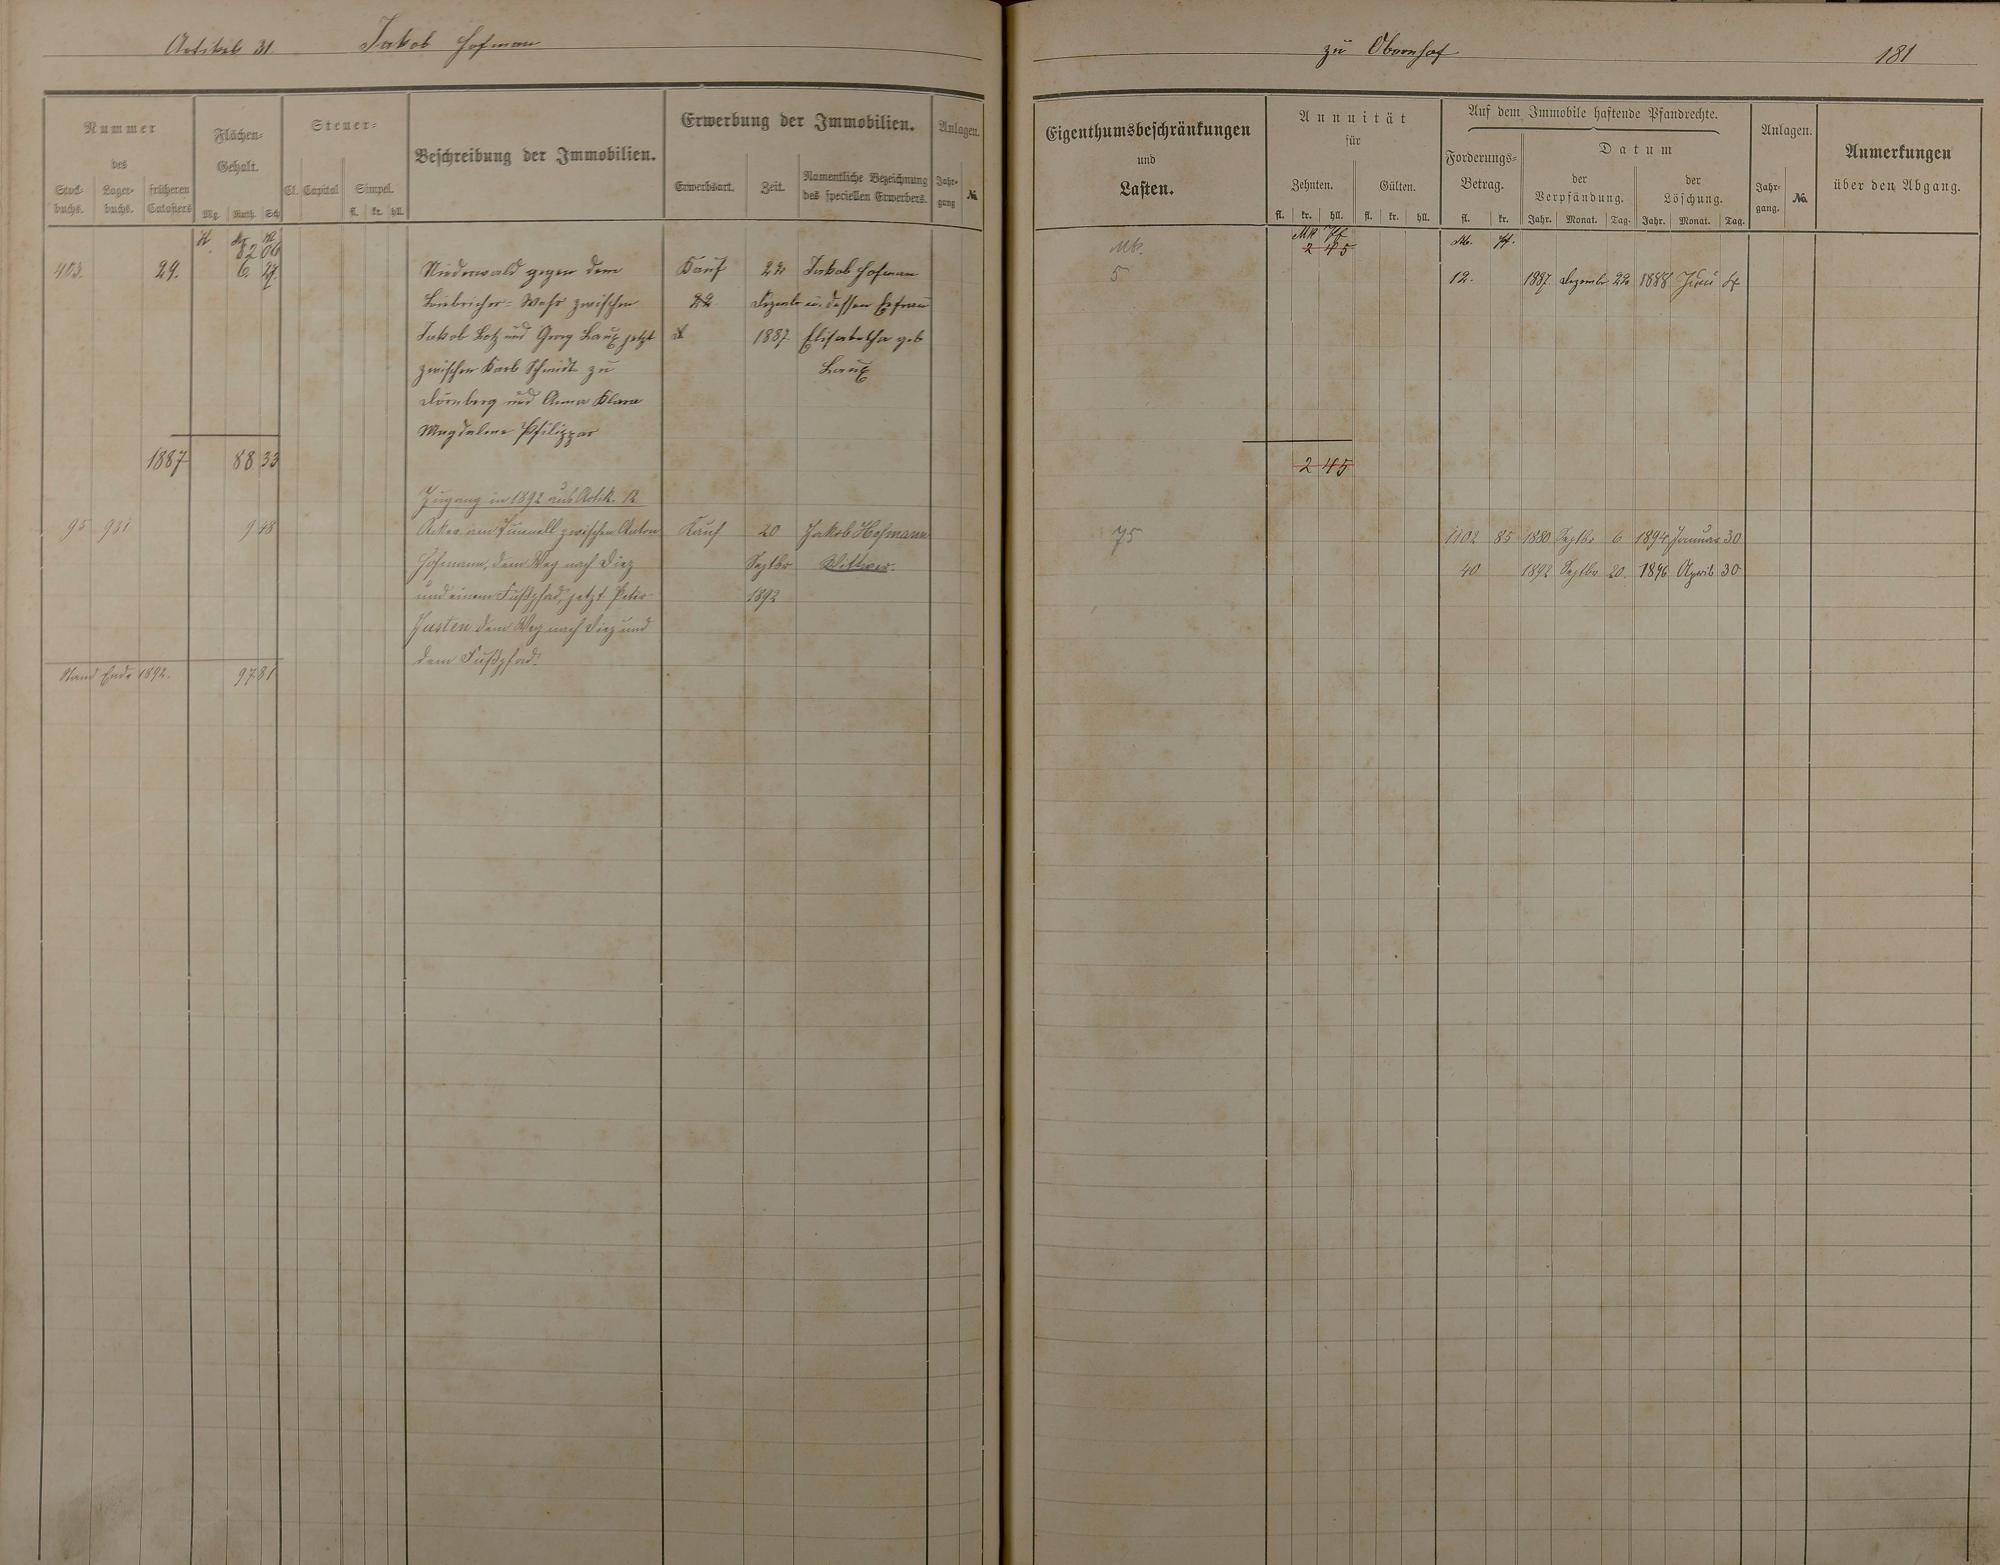 Artikel 31. Jakob Hofman
Nummer
des
Stock-
buchs.
Lager-
buchs.
früheren
Catasters
Flächen-
Gehalt.
Mg. Ruth. Sch
Steuer-
Cl. Capital Simpel.
fl. kr. hll.
Beschreibung der Immobilien.
Erwerbung der Immobilien.
Erwerbsart. Zeit. Namentliche Bezeichnung
des speciellen Erwerbers.
Anlagen.
Jahr-
gang
№
82 06
403. 29. 6 27 Niederwald gegen dem Kauf 22 Jakob Hofman
zwischen Dezembr u. dessen Ehefrau
Jakob Lotz und Georg Laux jetzt 1887 Elisabetha geb
zwischen Karl Schmidt zu Laux
Dörnberg und Anna Klara
Magdalene Philippar
1887 88 33
Zugang in 1892 aus Artik. 12
95 931 9 48 Acker am Tunnell zwischen Anton Kauf 20 Jakob Hofmann
Hofmann, dem Weg nach Diez Septbr Wittwer.
und einem Fußpfad, jetzt Peter 1892
Justen dem Weg nach Diez und
dem Fußpfad.
Stand Ende 1892. 97 81
zu Obernhof 181
Eigenthumsbeschränkungen
und
Lasten.
Annuität
für
Zehnten. Gülten.
fl. kr. hll. fl. kr. hll.
Auf dem Immobile haftende Pfandrechte.
Forderungs-
Betrag.
fl. kr.
Datum
der
Verpfändung.
Jahr. Monat. Tag.
der
Löschung.
Jahr. Monat. Tag.
Anlagen.
Jahr-
gang.
No.
Anmerkungen
über den Abgang.
Mk. Mk Pf M. Pf.
2 45
5 12. 1887 Dezembr 22 1888 Juni
2 45
75 1102 85 1880 Septbr 6 1894 Januar 30
40 1892 Septbr 20. 1896 April 30